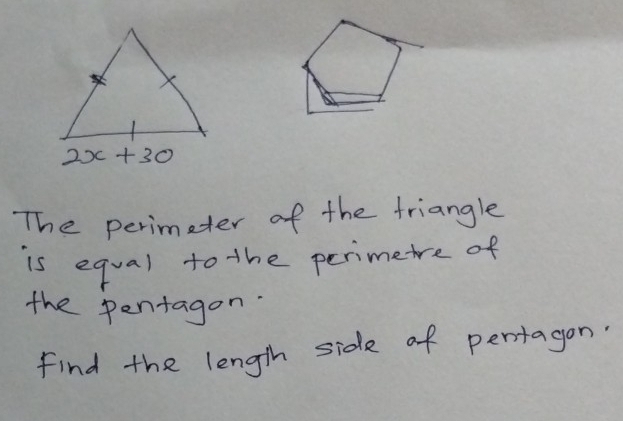 2x + 30
The perimeter of the triangle
is equal to the perimetre of
the pentagon.
Find the length side of pentagon.